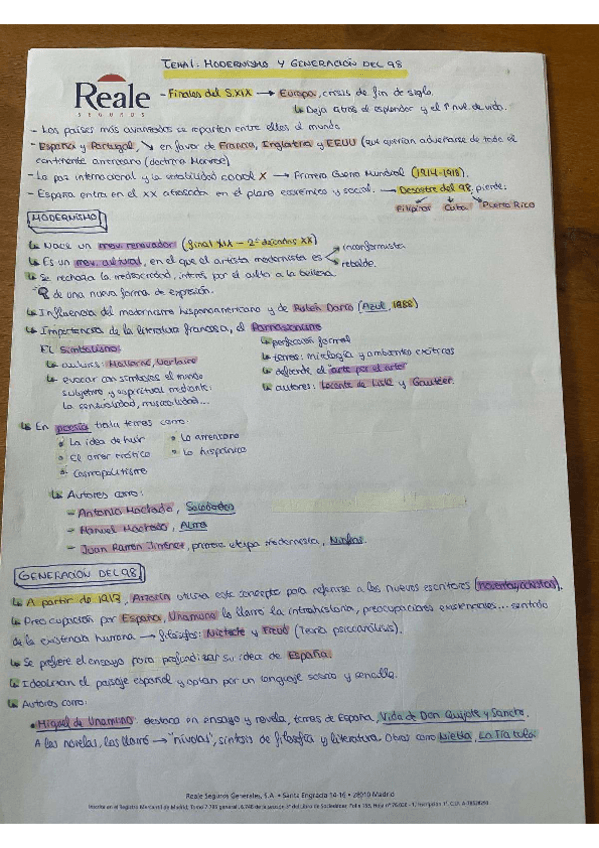 TEMA 1: MODERNISMO Y GENERACIÓN DEL 98
Reale
SEGUROS
- Finales del S.XIX → Europa, crisis de fin de siglo.
↳ Deja atrás el esplendor y el 1º niv. de vida.
- Los países más avanzados se reparten entre ellos el mundo
- España y Portugal, ↘ en favor de Francia, Inglaterra y EEUU (que querían adueñarse de todo el
continente americano (doctrina Monroe)
- La paz internacional y la estabilidad social X → Primera Guerra Mundial (1914-1918).
- España entra en el XX atrasada en el plano económico y social. → Desastre del 98, pierde:
Filipinas Cuba Puerto Rico
MODERNISMO
↳ Nace un mov. renovador (final XIX - 2ª décadas XX)
↳ Es un mov. cultural, en el que el artista modernista es
inconformista
rebelde.
↳ Se rechaza la mediocridad, interés por el culto a la belleza.
de una nueva forma de expresión.
↳ Influencia del modernismo hispanoamericano y de Rubén Darío (Azul, 1888)
↳ Importancia de la literatura francesa, el Parnasianismo
↳ perfección formal
↳ temas: mitología y ambientes exóticos
↳ defiende el "arte por el arte"
↳ autores: Leconte de Lisle y Gautier.
El Simbolismo:
↳ autores: Mallarmé, Verlaine
↳ evocar con símbolos el mundo
subjetivo y espiritual mediante:
la sensualidad, musicalidad...
↳ En poesía trata temas como:
• La idea de huir
• El amor erótico
• Cosmopolitismo
• Lo americano
• Lo hispánico
↳ Autores como:
- Antonio Machado, Soledades
- Manuel Machado, Alma
- Juan Ramón Jiménez, primera etapa modernista, Ninfeas.
GENERACIÓN DEL 98
↳ A partir de 1913, Azorín utiliza este concepto para referirse a los nuevos escritores (noventayochistas).
↳ Preocupación por España, Unamuno lo llamó la intrahistoria, preocupaciones existenciales... sentido
de la existencia humana → filósofos: Nietzsche y Freud (Teoría psicoanálisis).
↳ Se prefiere el ensayo para profundizar su idea de España.
↳ Idealizan el paisaje español y optan por un lenguaje sobrio y sencillo.
↳ Autores como:
• Miguel de Unamuno: destaca en ensayo y novela, temas de España, Vida de Don Quijote y Sancho.
A las novelas, las llamó → "nivolas", síntesis de filosofía y literatura. Obras como Niebla, La Tía Tula.
Reale Seguros Generales, S.A. • Santa Engracia 14-16 • 28010 Madrid